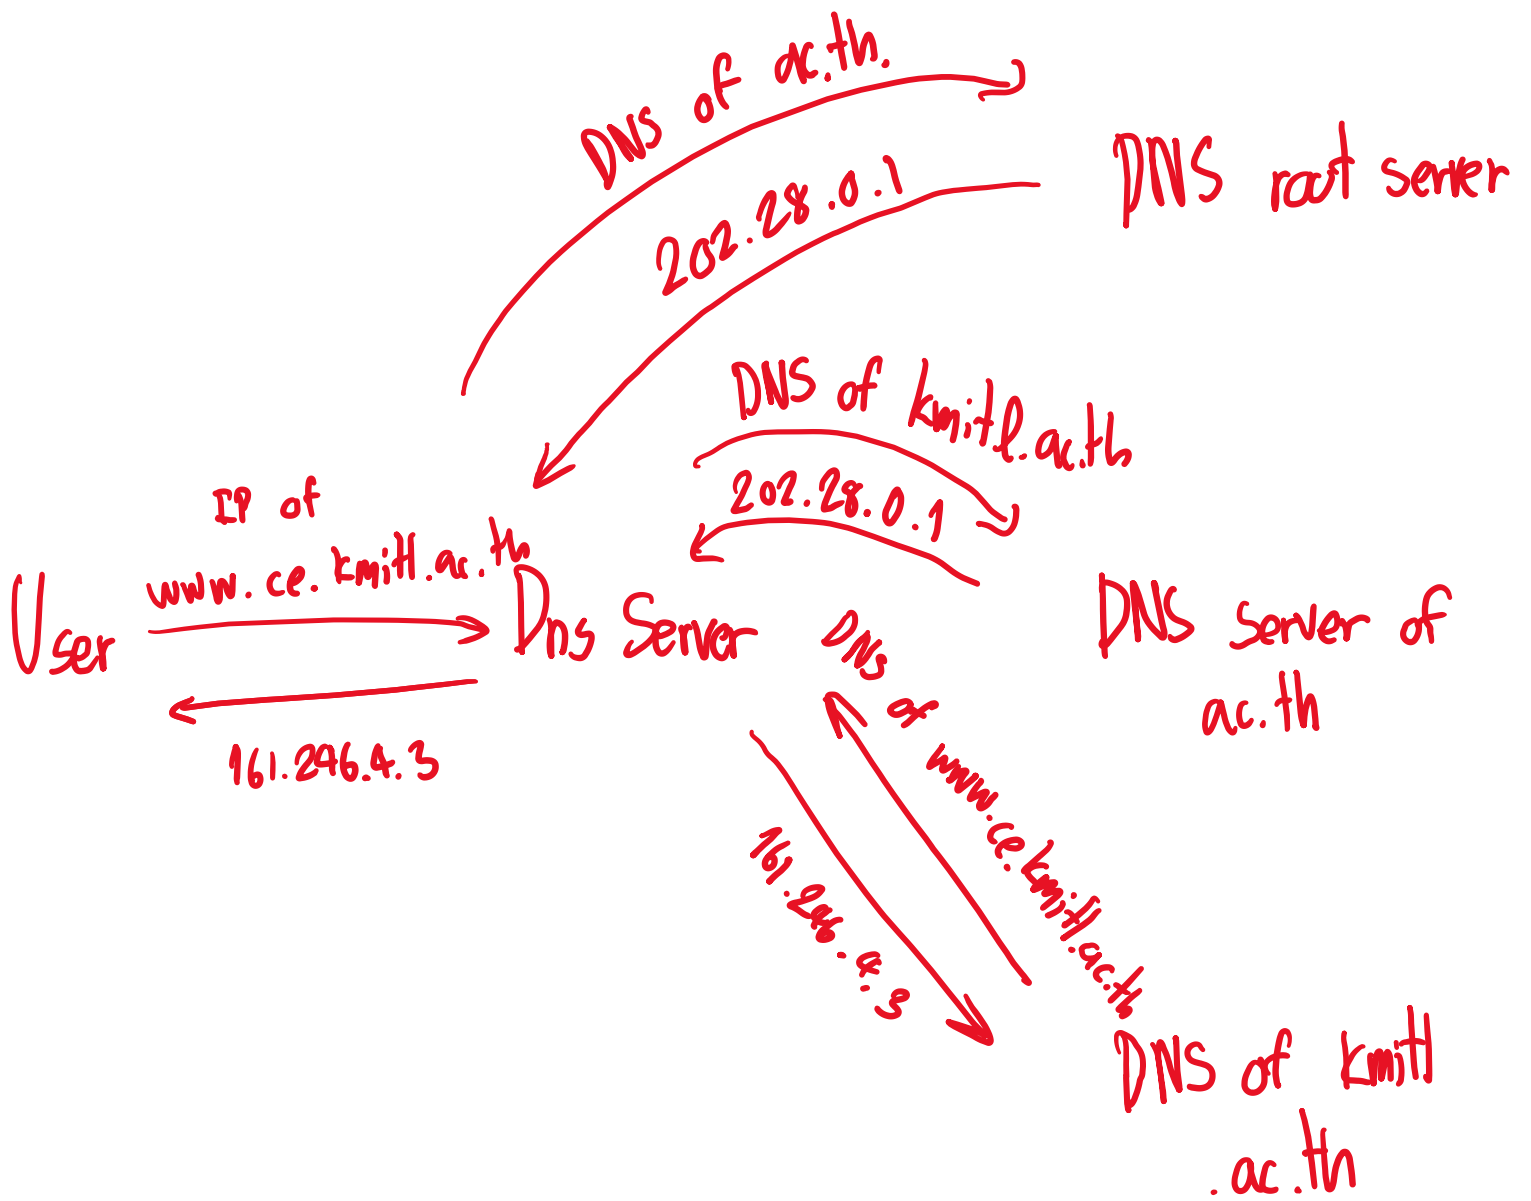 DNS of ac.th.
DNS root server
202.28.0.1
DNS of kmitl.ac.th
202.28.0.1
IP of
www.ce.kmitl.ac.th
User
Dns Server
DNS server of
ac.th
161.246.4.3
DNS of www.ce.kmitl.ac.th
161.246.4.3
DNS of kmitl
.ac.th